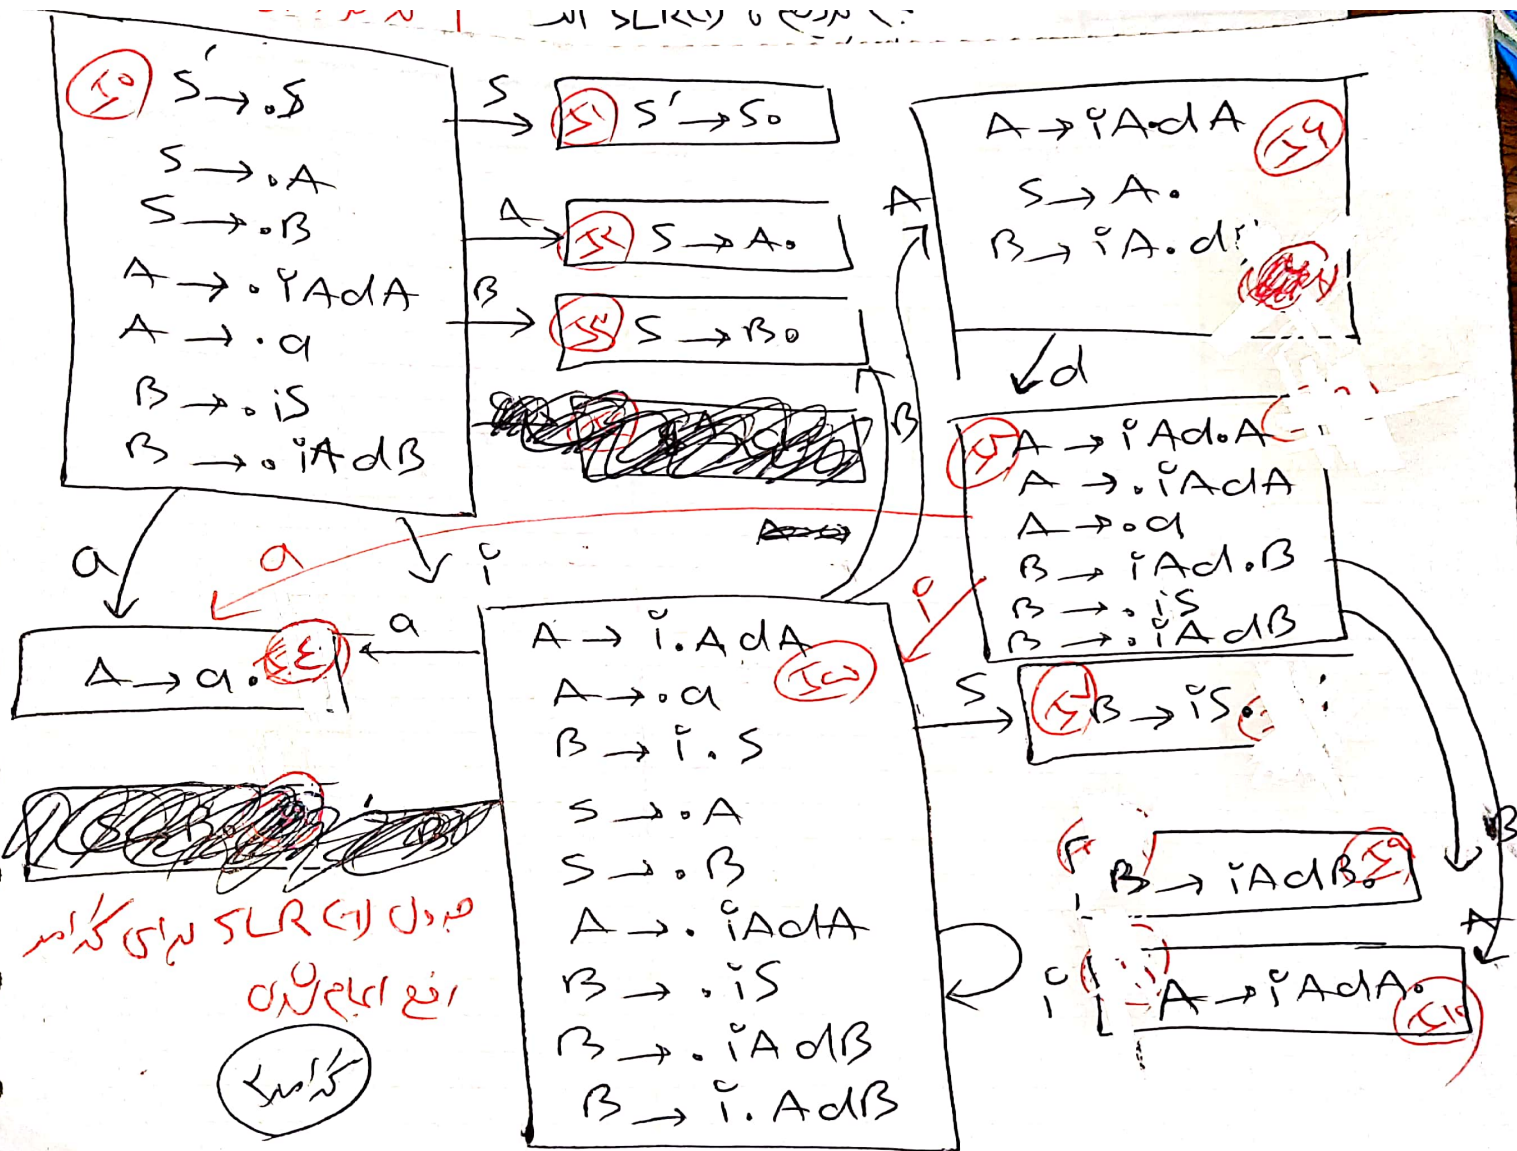 SLR(1)
I0
S' → .S
S → .A
S → .B
A → .iAdA
A → .a
B → .iS
B → .iAdB
S
I1
S' → S.
A
I2
S → A.
B
I3
S → B.
A
A → iA.dA
S → A.
B → iA.d
d
A → iAd.A
A → .iAdA
A → .a
B → iAd.B
B → .iS
B → .iAdB
B
a
a
i
i
A → a.
I4
a
A → i.AdA
A → .a
B → i.S
S → .A
S → .B
A → .iAdA
B → .iS
B → .iAdB
B → i.AdB
S
B → iS.
i
B
B → iAdB.
I9
A
A → iAdA.
I10
جدول SLR(1) برای گرامر
رفع ابهام شده